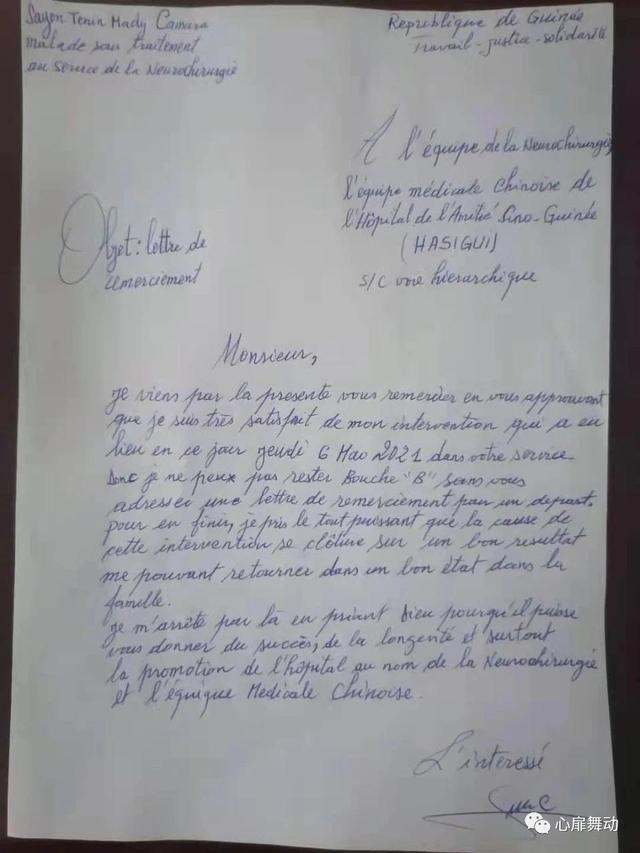 Sayon Tenin Mady Camara
malade sous traitement
au service de la Neurochirurgie
Republique de Guinée
Travail-justice-solidarité
A l'équipe de la Neurochirurgie
l'équipe médicale Chinoise de
l'Hôpital de l'Amitié Sino-Guinée
(HASIGUI)
S/C voie hierarchique
Objet: lettre de
remerciement
Monsieur,
Je viens par la presente vous remercier en vous approuvant
que je suis très satisfait de mon intervention qui a eu
lieu en ce jour jeudi 6 Mao 2021 dans votre service.
Donc je ne peux pas rester Bouche "B" sans vous
adresser une lettre de remerciement par un depart.
pour en finir, je pris le tout puissant que la cause de
cette intervention se clôture sur un bon resultat
me pouvant retourner dans un bon état dans la
famille.
Je m'arrête par là en priant Dieu pourqu'il puisse
vous donner du succès, de la longevité et surtout
la promotion de l'hôpital au nom de la Neurochirurgie
et l'équique Medicale Chinoise.
L'interessé
心扉舞动